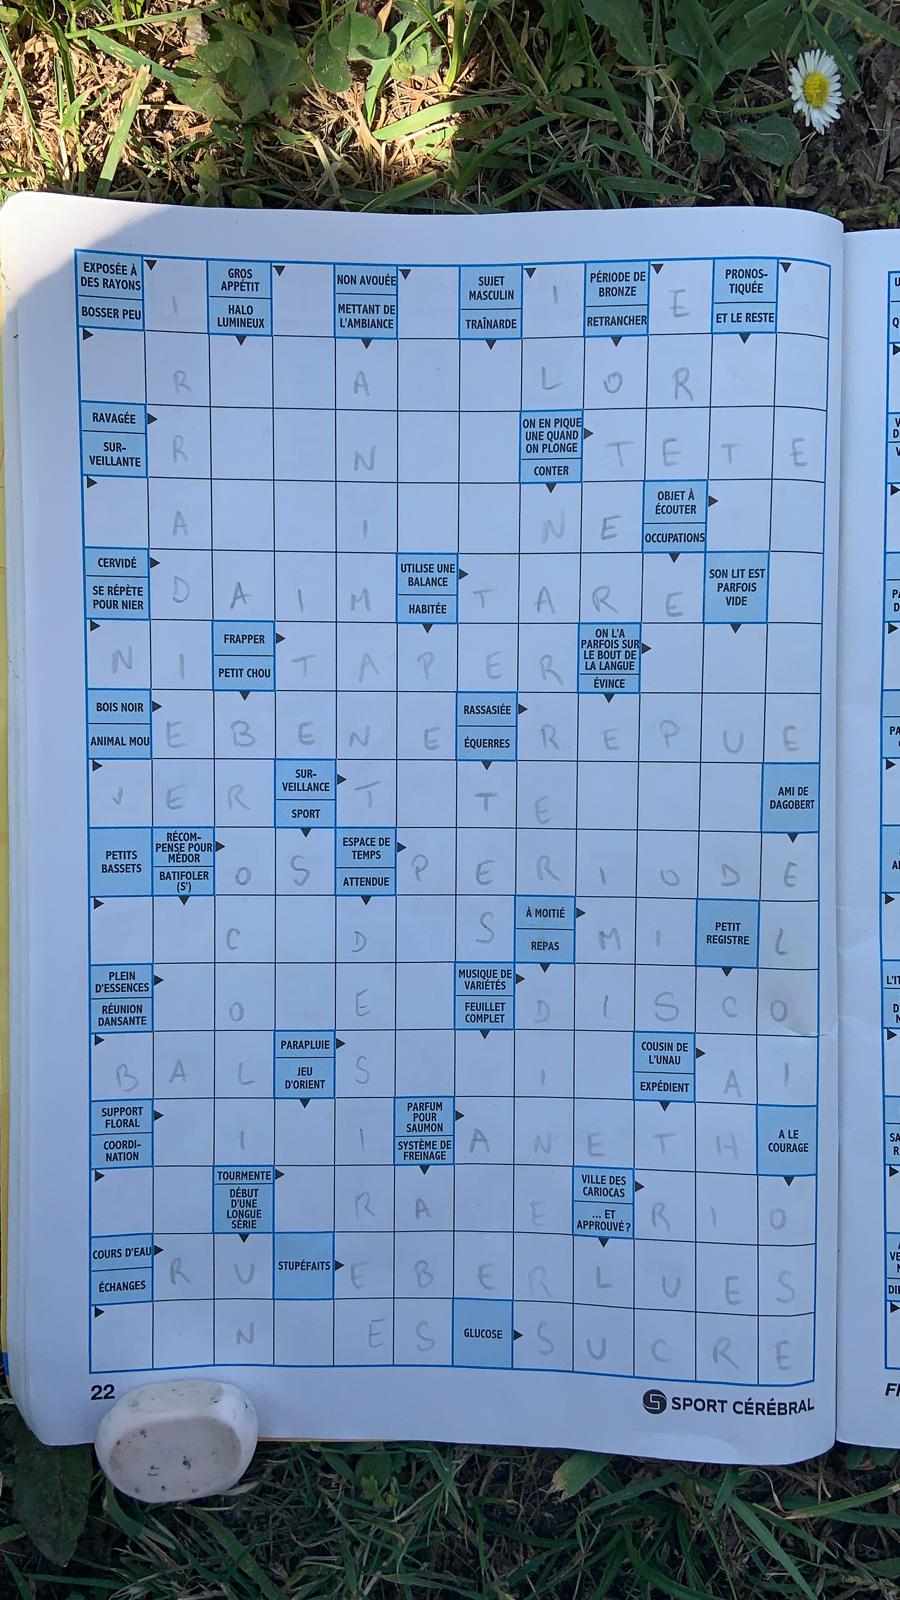 EXPOSÉE À DES RAYONS
BOSSER PEU
I
GROS APPÉTIT
HALO LUMINEUX
NON AVOUÉE
METTANT DE L'AMBIANCE
SUJET MASCULIN
TRAÎNARDE
I
PÉRIODE DE BRONZE
RETRANCHER
E
PRONOS-TIQUÉE
ET LE RESTE
R A L O R
RAVAGÉE
SUR-VEILLANTE
R N
ON EN PIQUE UNE QUAND ON PLONGE
CONTER
T E T E
A I N E
OBJET À ÉCOUTER
OCCUPATIONS
CERVIDÉ
SE RÉPÈTE POUR NIER
D A I M
UTILISE UNE BALANCE
HABITÉE
T A R E
SON LIT EST PARFOIS VIDE
N I
FRAPPER
PETIT CHOU
T A P E R
ON L'A PARFOIS SUR LE BOUT DE LA LANGUE
ÉVINCE
BOIS NOIR
ANIMAL MOU
E B E N E
RASSASIÉE
ÉQUERRES
R E P U E
V E R
SUR-VEILLANCE
SPORT
T T E
AMI DE DAGOBERT
PETITS BASSETS
RÉCOM-PENSE POUR MÉDOR
BATIFOLER (S')
O S
ESPACE DE TEMPS
ATTENDUE
P E R I O D E
C D S
À MOITIÉ
REPAS
M I
PETIT REGISTRE
L
PLEIN D'ESSENCES
RÉUNION DANSANTE
O E
MUSIQUE DE VARIÉTÉS
FEUILLET COMPLET
D I S C O
B A L
PARAPLUIE
JEU D'ORIENT
S I
COUSIN DE L'UNAU
EXPÉDIENT
A I
SUPPORT FLORAL
COORDI-NATION
I I
PARFUM POUR SAUMON
SYSTÈME DE FREINAGE
A N E T H
A LE COURAGE
TOURMENTE
DÉBUT D'UNE LONGUE SÉRIE
R A E
VILLE DES CARIOCAS
... ET APPROUVÉ ?
R I O
COURS D'EAU
ÉCHANGES
R U
STUPÉFAITS
E B E R L U E S
N E S
GLUCOSE
S U C R E
22
SPORT CÉRÉBRAL